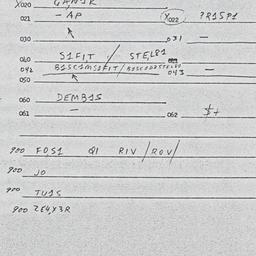 X020 GANIK
021 - AP X022 PR1SP1
030 031 -
040 S1FIT / STEL81
042 B1SC1MS1FIT / 043 -
050
060 DEMB1S
061 - 062 $+
900 FOS1 Q1 RIV / ROV/
900 JO
900 TU1S
900 2E4Y3R